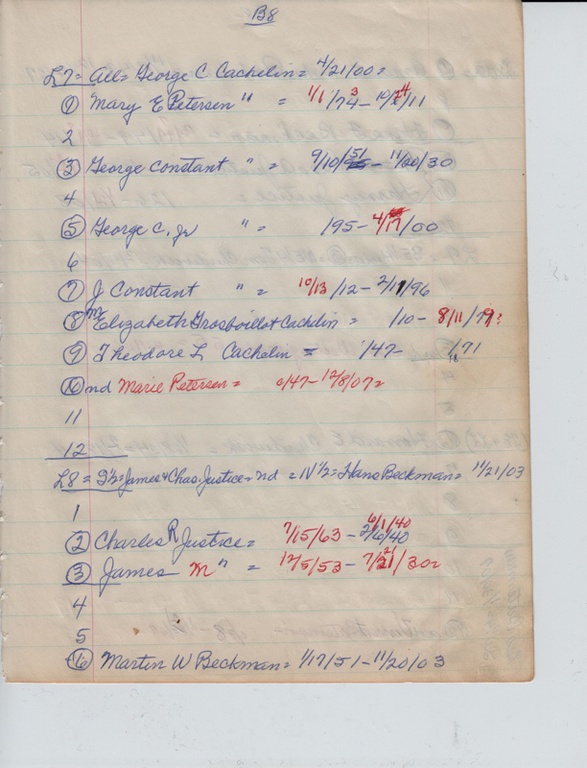 B8
L7 = All = George C Cachelin = 4/21/00 =
① Mary E Petersen " = 1/1/74 3 - 10/24/11
2
③ George Constant " = 9/10/51 - 11/20/30
4
⑤ George C, Jr " = 195 - 4/17/00
6
⑦ J Constant " = 10/13/12 - 2/11/96
⑧ M Elizabeth Grosvillot Cachelin = /10 - 8/11/79?
⑨ Theodore L Cachelin = /47- /71
⑩ nd Marie Petersen = /47-12/8/07=
11
12
L8 = S½ = James & Chas. Justice = nd = N½ = Hans Beckman = 11/21/03
1
② Charles R Justice = 7/15/63 - 6/1/40 2/6/40
③ James M " = 12/5/53 - 7/21/30
4
5
⑥ Martin W Beckman = 1/17/51 - 11/20/03